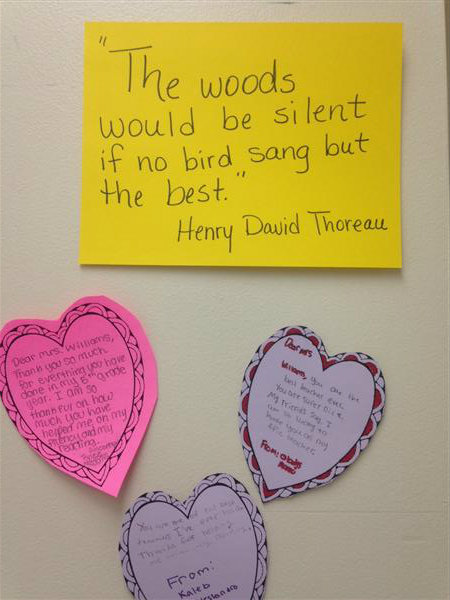 "The woods
would be silent
if no bird sang but
the best."
Henry David Thoreau
Dear Mrs. Williams,
Thank you so much
for everything you have
done in my 5th grade
year. I am so
thankful on how
much you have
helped me on my
and my
reading.
Dear Mrs
Williams, you are the
best teacher ever.
You are super nice &
My friends say I
am so lucky to
have you as my
teacher.
From:
You are one of the best
teachers I've ever had
Thanks for
From:
Kaleb